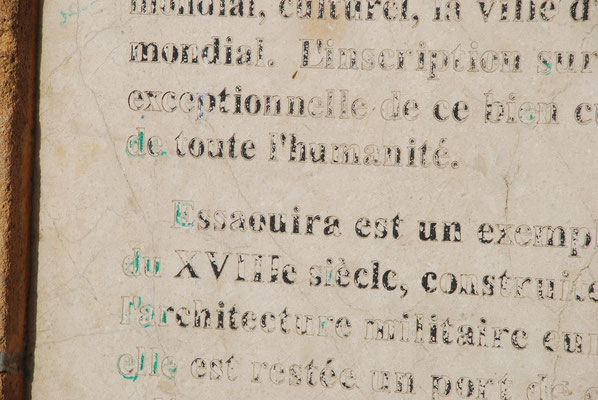 mondial, culturel, la ville d'
mondial. L'inscription sur
exceptionnelle de ce bien cu
de toute l'humanité.
Essaouira est un exempl
du XVIIIe siècle, construite
l'architecture militaire eur
elle est restée un port de